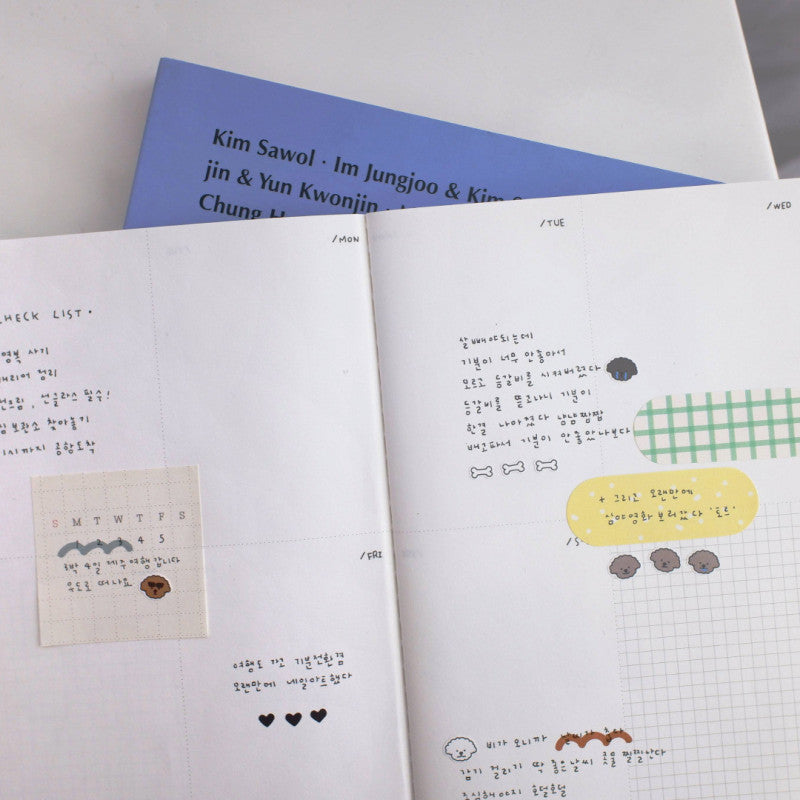 Kim Sawol · Im Jungjoo & Kim
jin & Yun Kwonjin ·
Chung H
/MON
/TUE
/WED
HECK LIST.
사기
정리
, 선글라스 필수!
찾아놓기
시까지 공항도착
S M T W T F S
1 2 3 4 5
3박 4일 제주여행갑니다
우도로 떠나요
/FRI
여행도 가고 기분전환겸
오랜만에 네일아트했다
살빼야되는데
기분이 너무 안좋아서
모르고 등갈비를 시켜버렸다
등갈비를 뜯고나니 기분이
한결 나아졌다 냠냠짭짭
배고파서 기분이 안좋았나보다
+ 그리고 오랜만에
심야영화 보러갔다 '토르'
/S
비가 오니까 날씨가 춥다
감기 걸리기 딱 좋은날씨 콧물 찔찔난다
조심해야지 호덜호덜